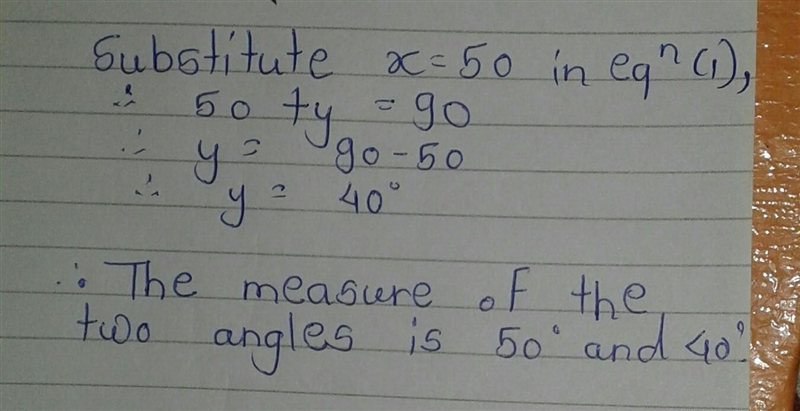 Substitute x = 50 in eqⁿ (1),
∴ 50 + y = 90
∴ y = 90 - 50
∴ y = 40°
∴ The measure of the
two angles is 50° and 40°.